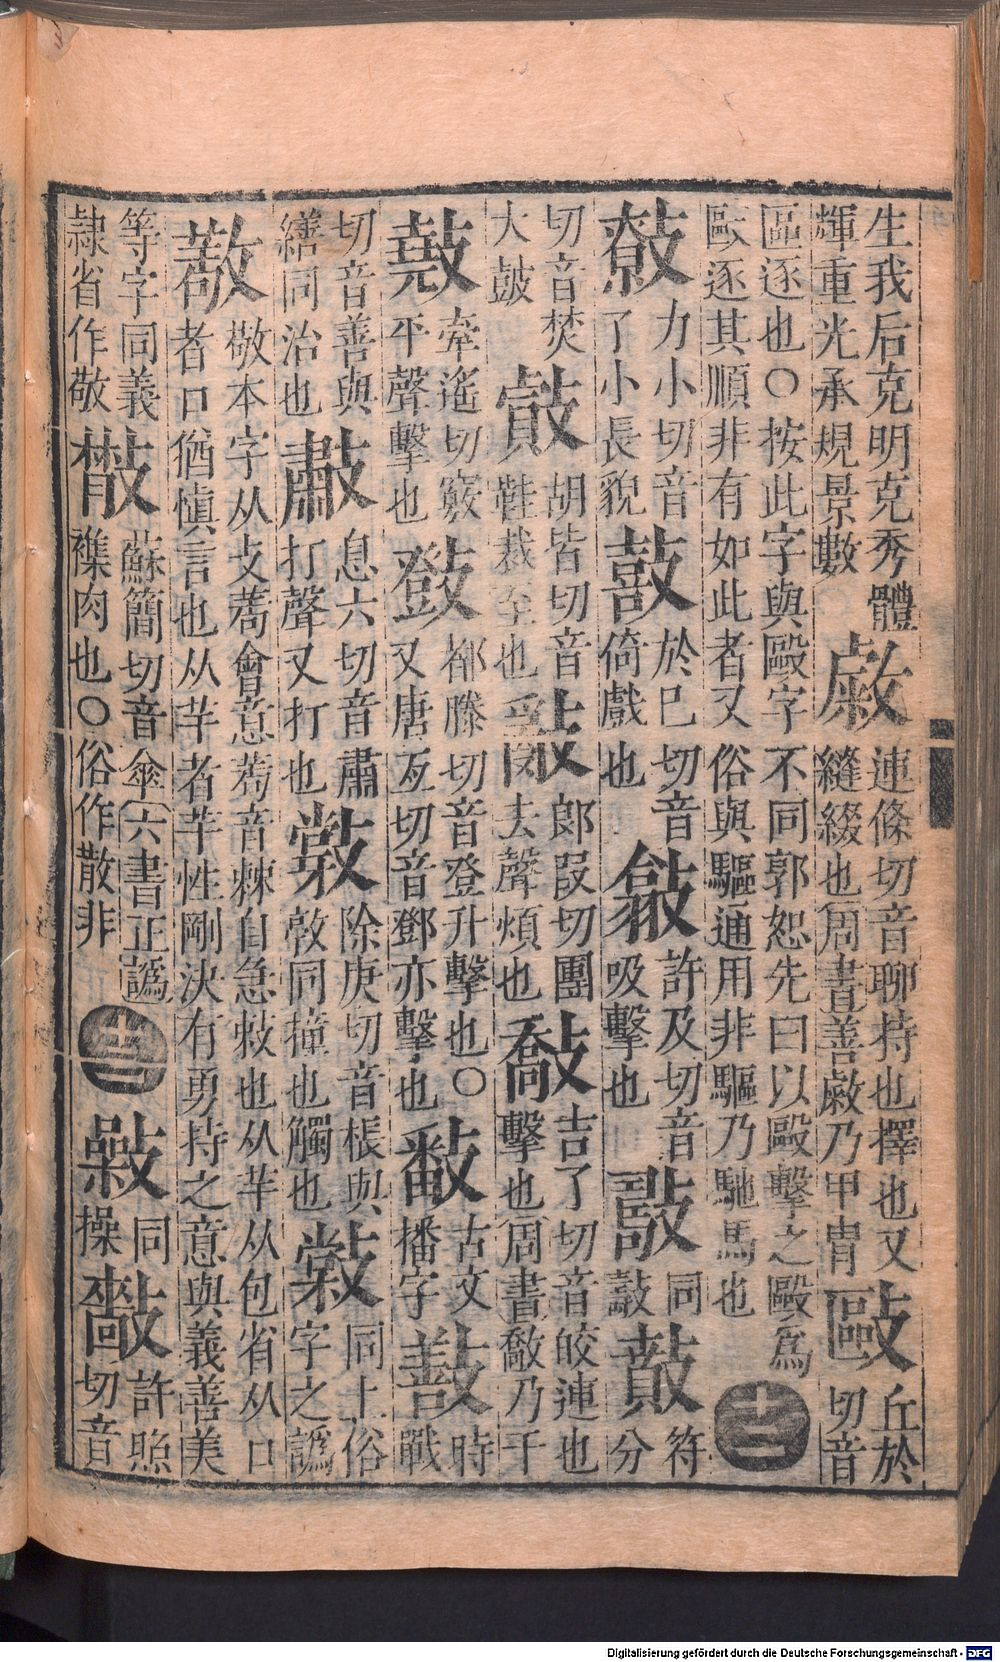 生我后克明克秀體
輝重光承規景數
敹
連條切音聊持也擇也又
縫綴也周書善敹乃甲冑
敺
丘於
切音
區逐也○按此字與毆字不同郭恕先曰以毆擊之毆爲
歐逐其順非有如此者又俗與驅通用非驅乃馳馬也
十二
力小切音
了小長貌
敼
於巳切音
倚戲也
許及切音
吸擊也
同
敲
符
分
切音焚
大鼓
胡皆切音
鞋裁至也
郎叚切團
去聲煩也
敽
吉了切音皎連也
擊也周書敽乃干
牽遙切竅
平聲擊也
都滕切音登升擊也○
又唐亙切音鄧亦擊也
古文
播字
敾
時
戰
切音善與
繕同治也
息六切音肅
打聲又打也
除庚切音棖與
同撞也觸也
同上俗
字之譌
敬本字从攴会意音棘自急敕也从羊从包省从口
者口猶慎言也从羊者羊性剛決有勇持之意與義善美
等字同義
隷省作敬
𢿱
蘇簡切音傘六書正譌
襍肉也○俗作散非
十三
同
操
許照
切音
Digitalisierung gefördert durch die Deutsche Forschungsgemeinschaft - DFG